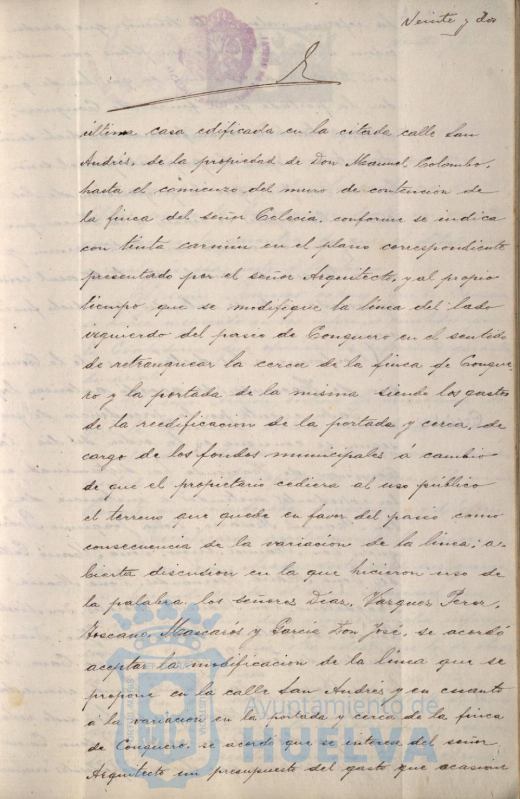 Veinte y dos
última casa edificada en la citada calle San
Andrés, de la propiedad de Don Manuel Colombo,
hasta el comienzo del muro de contención de
la finca del señor Celecia, conforme se indica
con tinta carmin en el plano correspondiente
presentado por el señor Arquitecto, y al propio
tiempo que se modifique la linea del lado
izquierdo del paseo de Conquero en el sentido
de retranquear la cerca de la finca de Conque-
ro y la portada de la misma siendo los gastos
de la reedificacion de la portada y cerca, de
cargo de los fondos municipales á cambio
de que el propietario cediera al uso público
el terreno que quede en favor del paseo como
consecuencia de la variacion de la linea; a-
bierta discusion en la que hicieron uso de
la palabra los señores Diaz, Vazquez Perez,
Toscano, Mascarós y Garcia Don José, se acordó
aceptar la modificacion de la linea que se
propone en la calle San Andrés y en cuanto
á la variacion en la portada y cerca de la finca
de Conquero, se acordó que se interese del señor
Arquitecto un presupuesto del gasto que ocasione
Ayuntamiento de
HUELVA